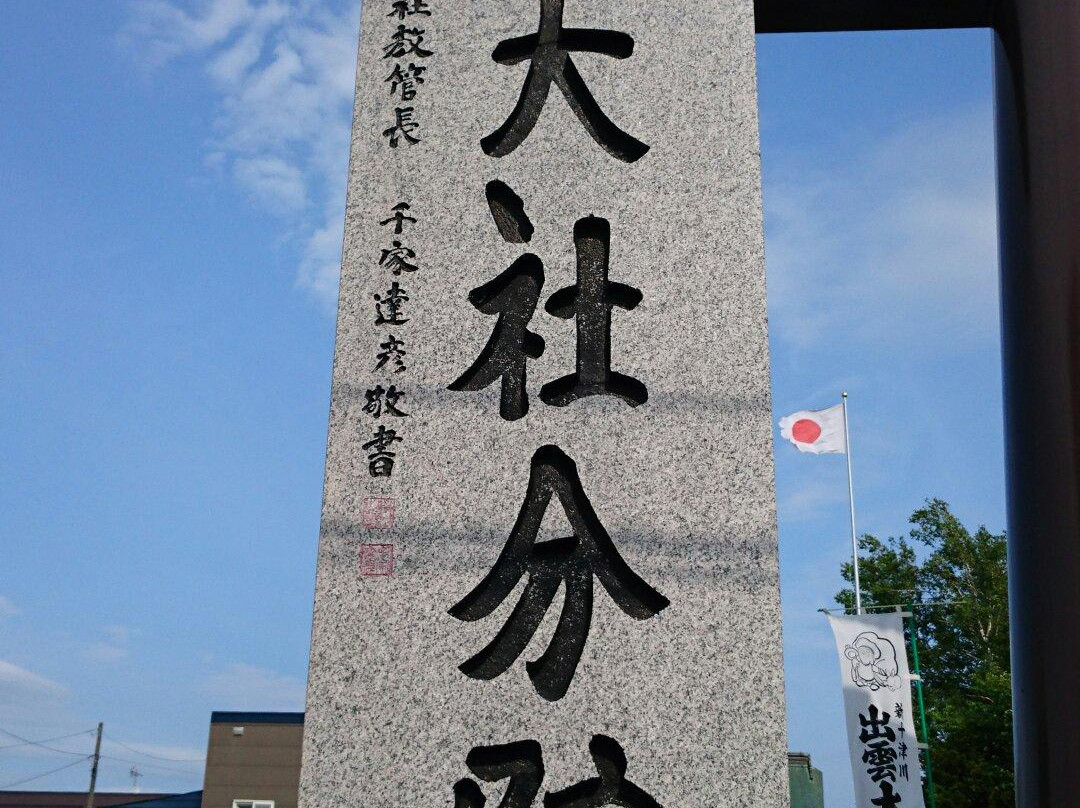 大社分
社教管長 千家達彦敬書
新十津川
出雲大